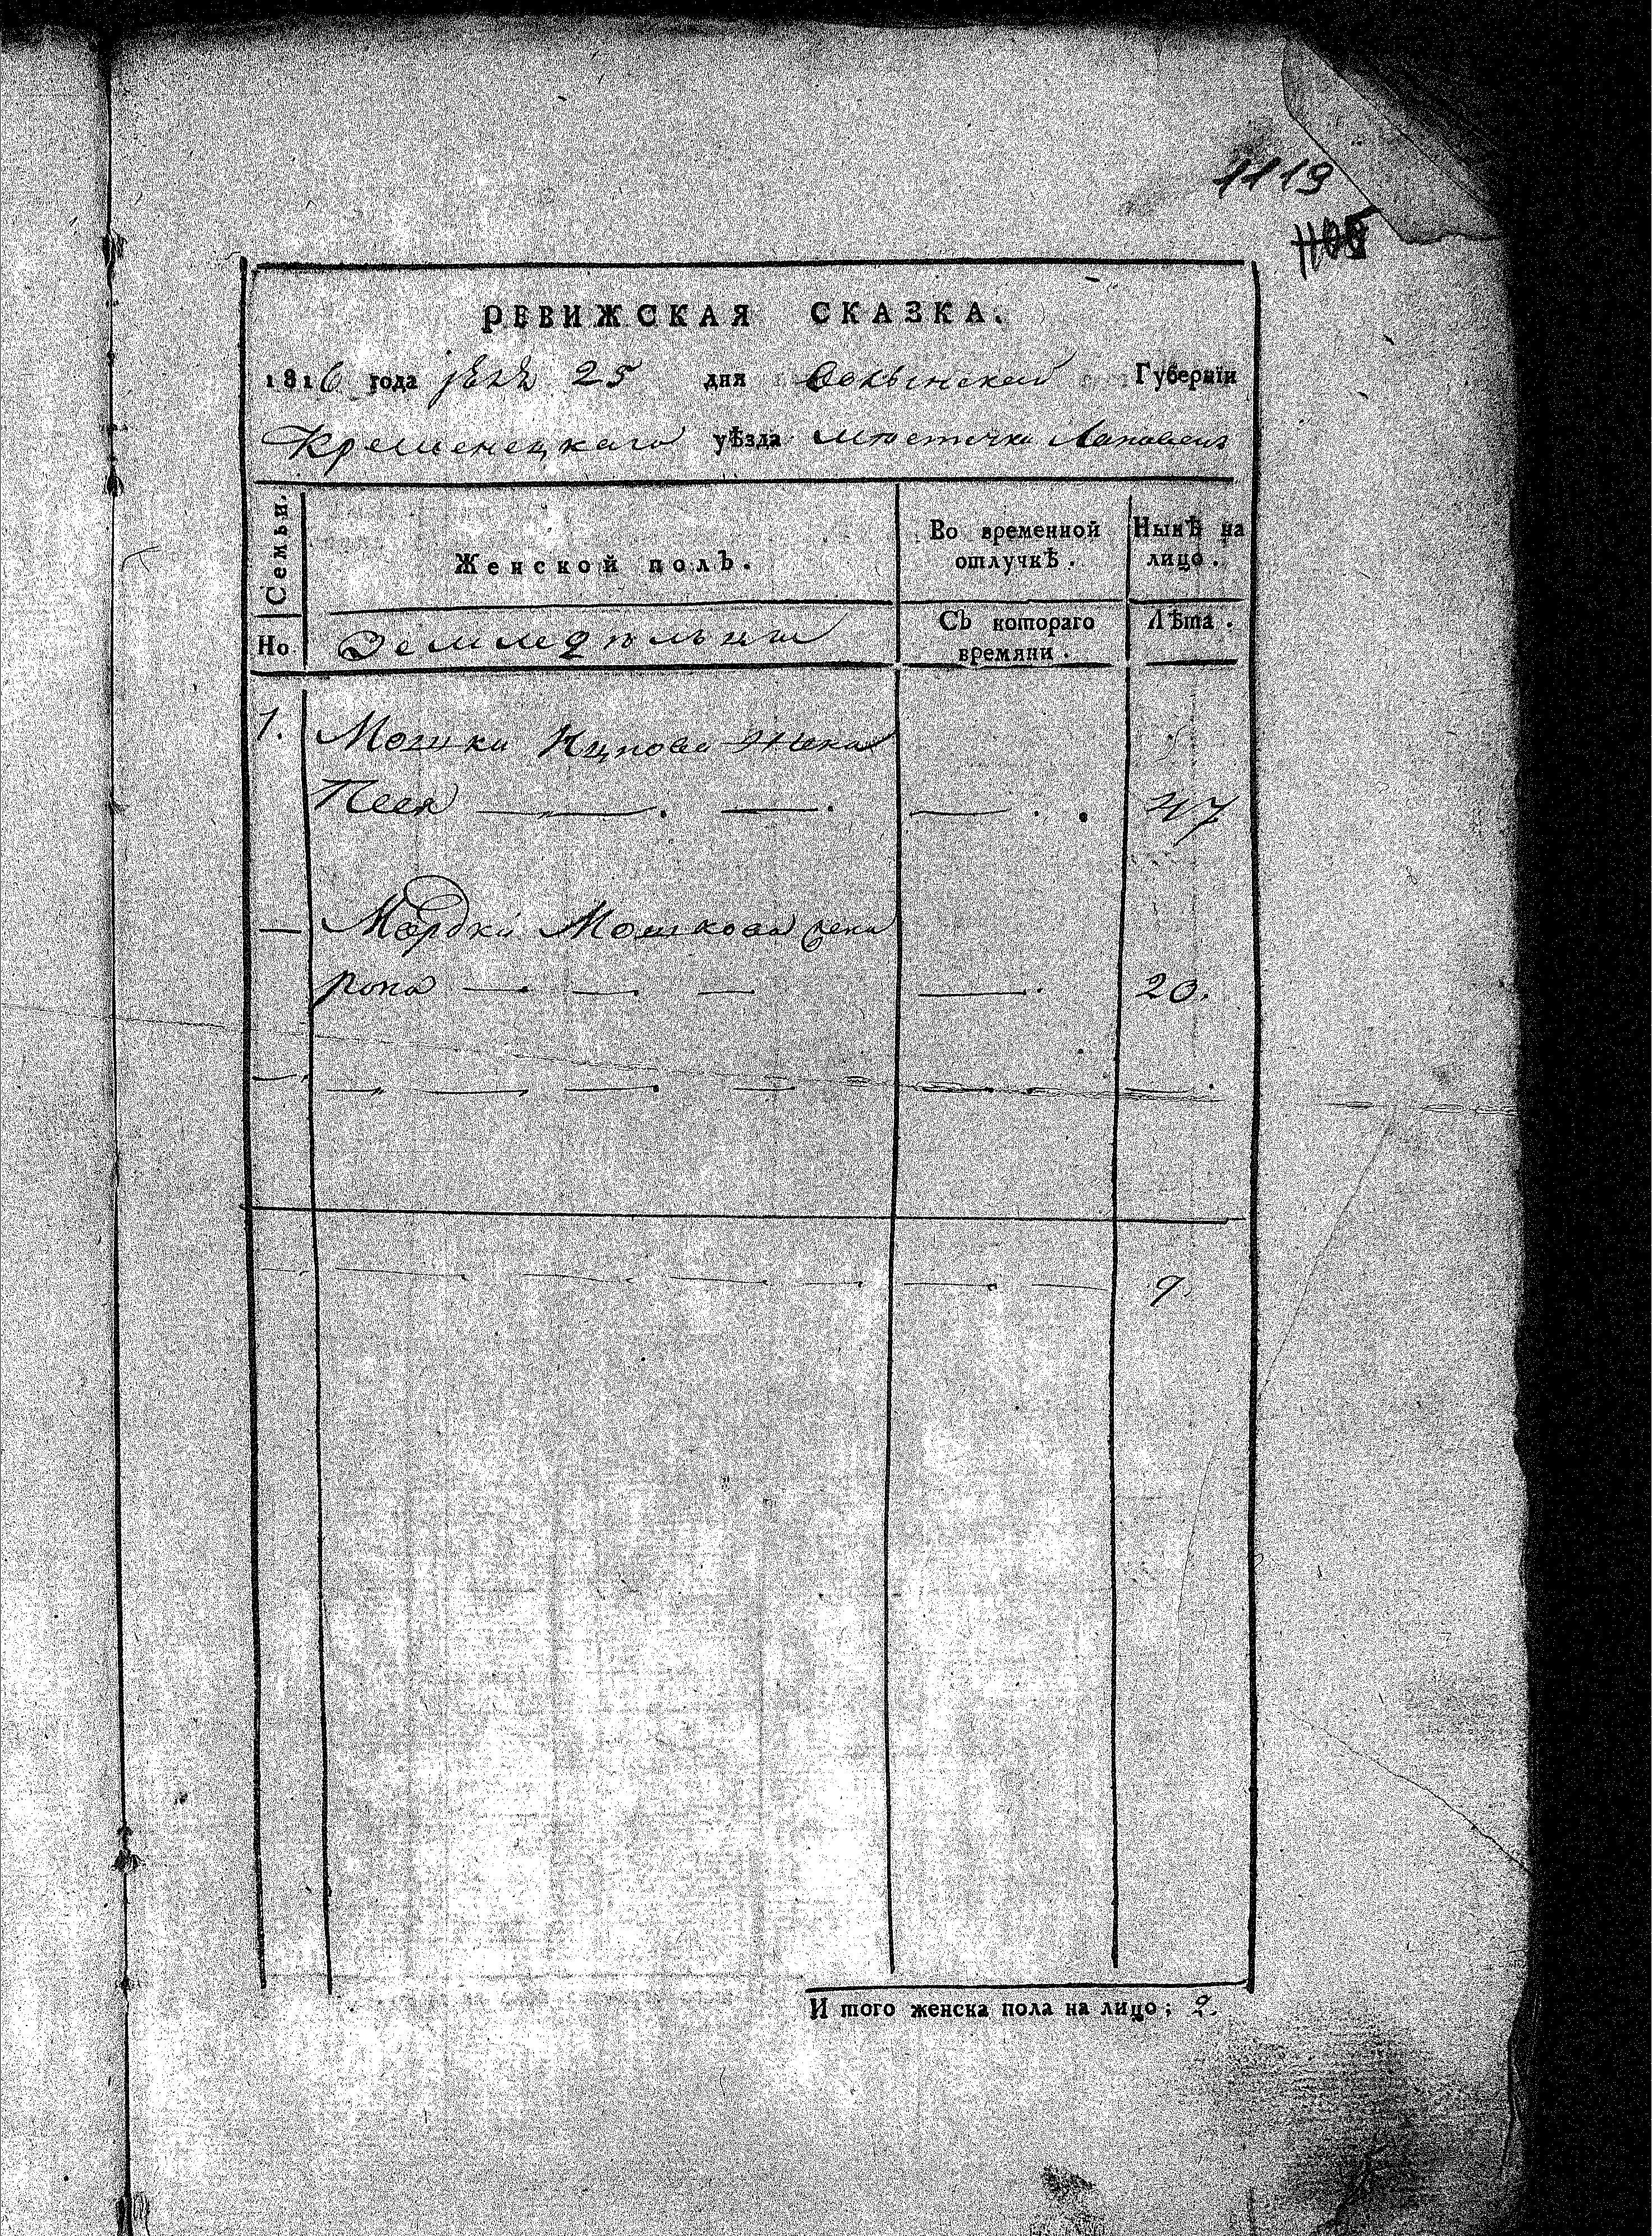 1119
1105
РЕВИЖСКАЯ СКАЗКА.
1816 года 25 дня Волынской Губерніи
Кременецкаго уѣзда местечка
Семьи.
Женской полъ.
Во временной отлучкѣ.
Нынѣ на лицо.
Но
Съ котораго времяни.
Лѣта.
1. Мошки Ицкова жена
Песя 47
Мордки Мошкова жена
20.
И того женска пола на лицо; 2.